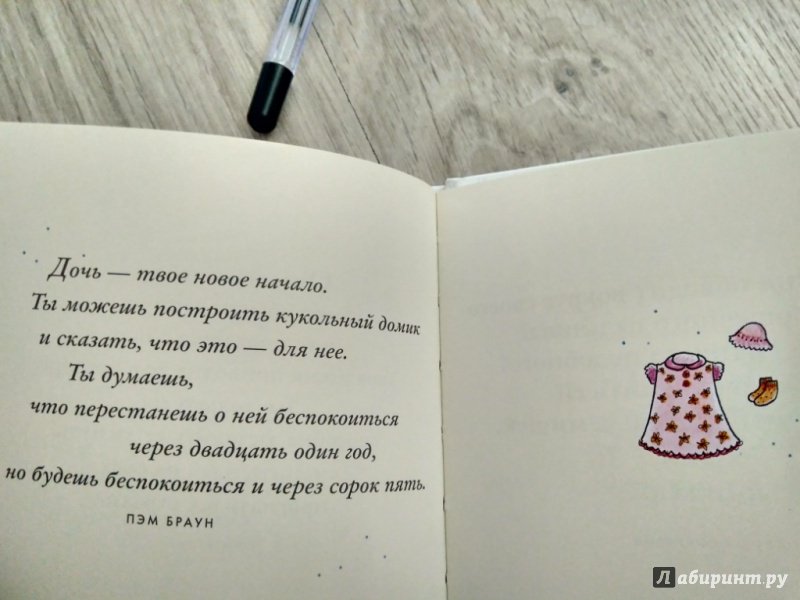 Дочь — твое новое начало.
Ты можешь построить кукольный домик
и сказать, что это — для нее.
Ты думаешь,
что перестанешь о ней беспокоиться
через двадцать один год,
но будешь беспокоиться и через сорок пять.
ПЭМ БРАУН
Лабиринт.ру